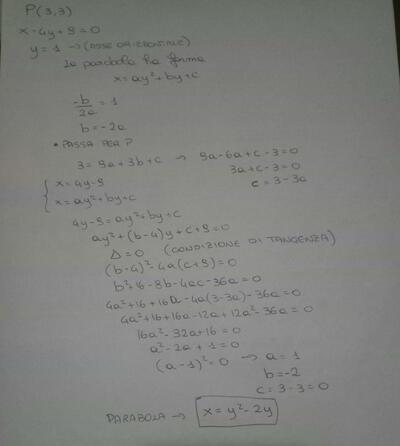 P(3,3)
x-4y+9=0
y=1 → (ASSE ORIZZONTALE)
la parabola ha forma
x=ay²+by+c
-b/2a = 1
b=-2a
• PASSA PER P
3=9a+3b+c → 9a-6a+c-3=0
3a+c-3=0
c=3-3a
{ x=4y-9
x=ay²+by+c
4y-9=ay²+by+c
ay²+(b-4)y+c+9=0
Δ=0 (CONDIZIONE DI TANGENZA)
(b-4)²-4a(c+9)=0
b²+16-8b-4ac-36a=0
4a²+16+16a-4a(3-3a)-36a=0
4a²+16+16a-12a+12a²-36a=0
16a²-32a+16=0
a²-2a+1=0
(a-1)²=0 → a=1
b=-2
c=3-3=0
PARABOLA → x=y²-2y